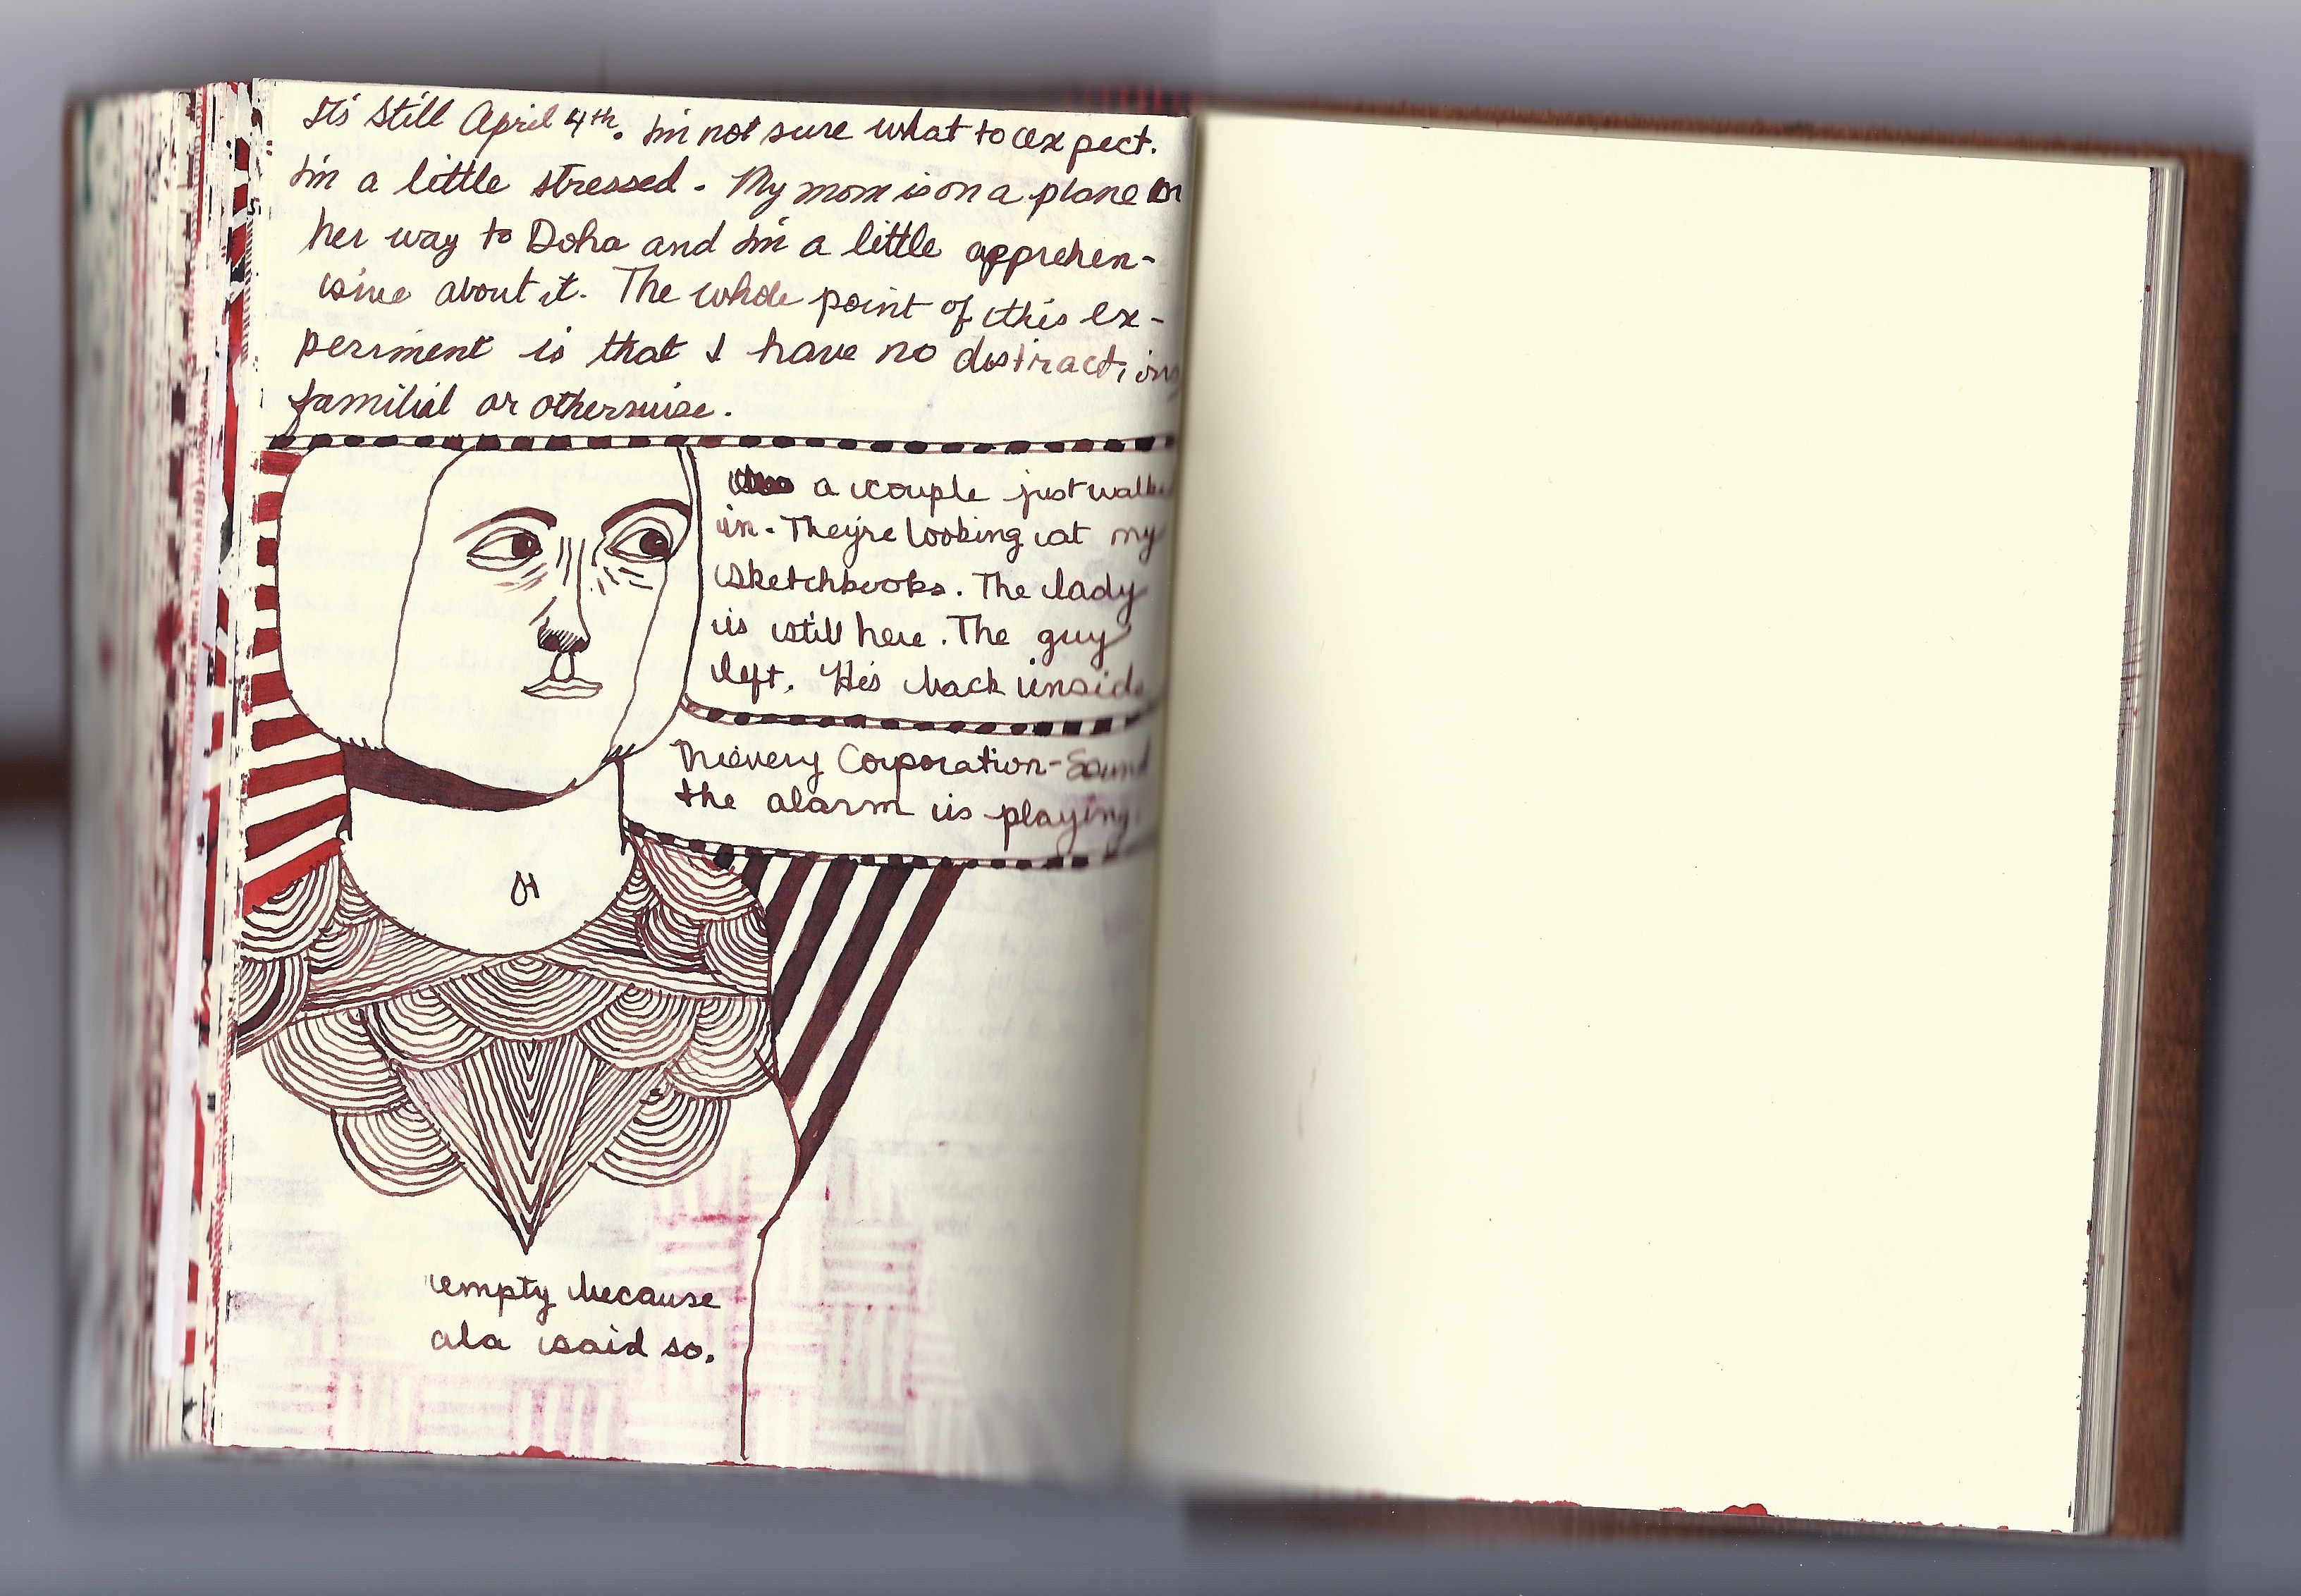 It's still April 4th. I'm not sure what to expect.
I'm a little stressed. My mom is on a plane on
her way to Doha and I'm a little apprehen-
sive about it. The whole point of this ex-
periment is that I have no distractions
familial or otherwise.
a couple just walked
in. They're looking at my
sketchbooks. The lady
is still here. The guy
left. He's back inside
Thievery Corporation - Sound
the alarm is playing.
empty because
ala said so.